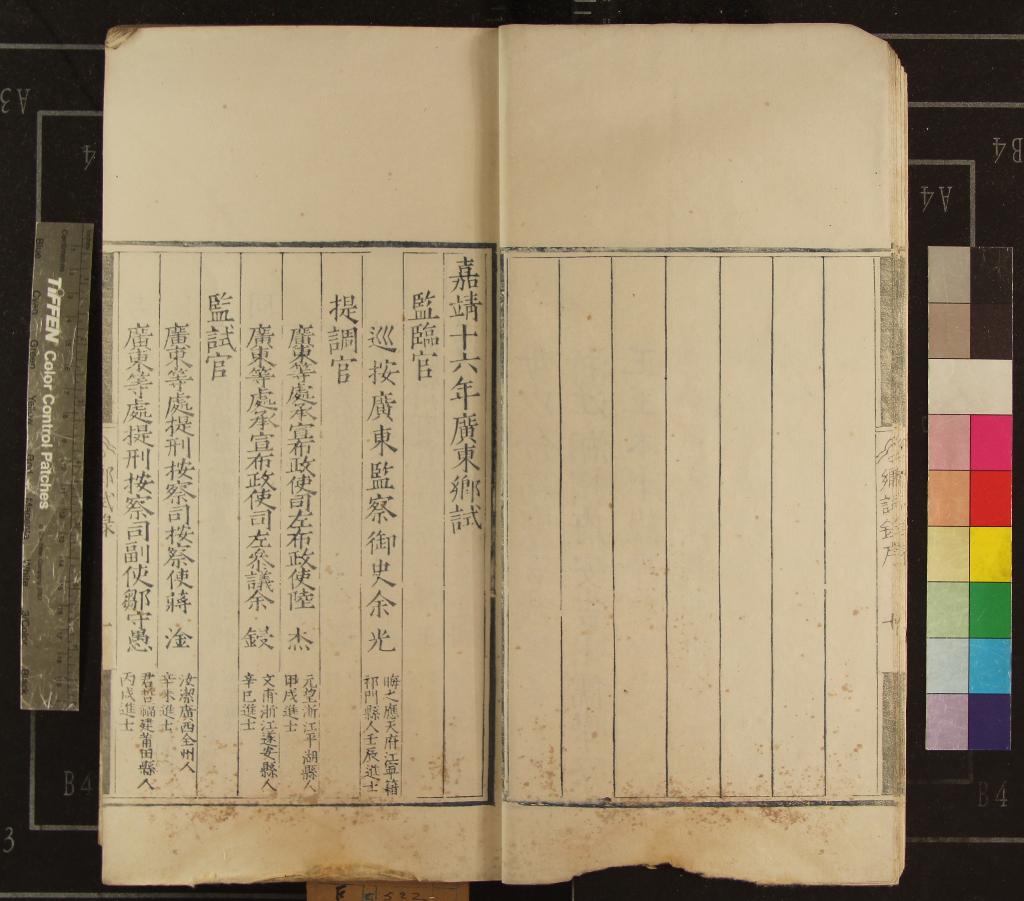 嘉靖十六年廣東鄉試
監臨官
巡按廣東監察御史余光
晦之應天府江寧籍
祁門縣人壬辰進士
提調官
廣東等處承宣布政使司左布政使陸 杰
元望浙江平湖縣人
甲戌進士
廣東等處承宣布政使司左參議余 鋟
文甫浙江遂安縣人
辛巳進士
監試官
廣東等處提刑按察司按察使蔣 淦
汝潔廣西全州人
辛未進士
廣東等處提刑按察司副使鄒守愚
君哲福建莆田縣人
丙戌進士
鄉試錄
一
鄉試錄序
十
TIFFEN Color Control Patches
A3
B4
A4
B4
B4
3